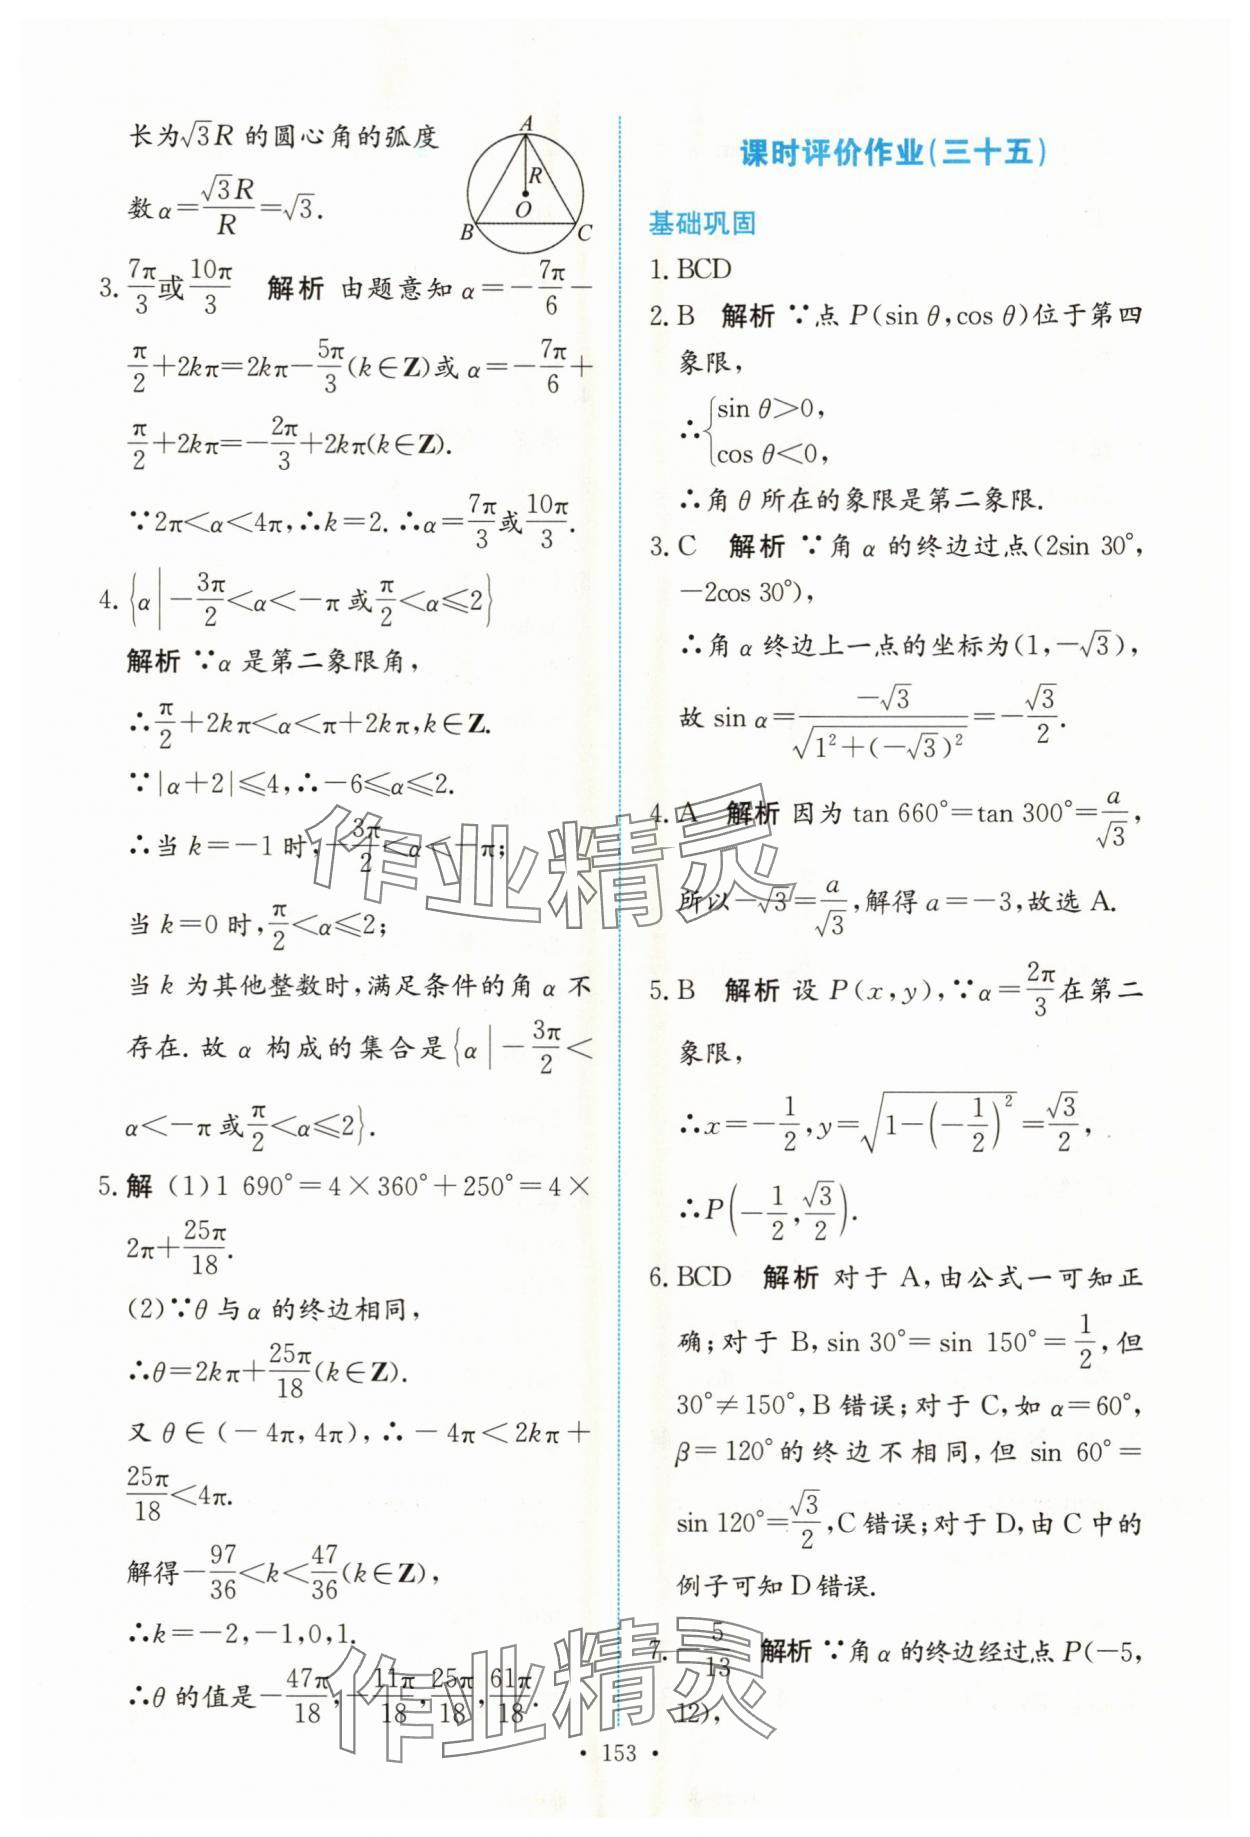 长为√3R 的圆心角的弧度
数 α=√3R/R=√3.
A
R
O
B
C
3. 7π/3或10π/3 解析 由题意知 α=-7π/6-
π/2+2kπ=2kπ-5π/3(k∈Z)或 α=-7π/6+
π/2+2kπ=-2π/3+2kπ(k∈Z).
∵2π<α<4π,∴k=2.∴α=7π/3或10π/3.
4. {α|-3π/2<α<-π 或π/2<α≤2}
解析 ∵α 是第二象限角,
∴π/2+2kπ<α<π+2kπ,k∈Z.
∵|α+2|≤4,∴-6≤α≤2.
∴当 k=-1 时,-3π/2<α<-π;
当 k=0 时,π/2<α≤2;
当 k 为其他整数时,满足条件的角 α 不
存在. 故 α 构成的集合是{α|-3π/2<
α<-π 或π/2<α≤2}.
5. 解 (1)1 690°=4×360°+250°=4×
2π+25π/18.
(2)∵θ 与 α 的终边相同,
∴θ=2kπ+25π/18(k∈Z).
又 θ∈(-4π,4π),∴-4π<2kπ+
25π/18<4π.
解得-97/36<k<47/36(k∈Z),
∴k=-2,-1,0,1.
∴θ 的值是-47π/18,-11π/18,25π/18,61π/18.
课时评价作业(三十五)
基础巩固
1. BCD
2. B 解析 ∵点 P(sin θ,cos θ)位于第四
象限,
∴{sin θ>0,
cos θ<0,
∴角 θ 所在的象限是第二象限.
3. C 解析 ∵角 α 的终边过点(2sin 30°,
-2cos 30°),
∴角 α 终边上一点的坐标为(1,-√3),
故 sin α=-√3/√(1²+(-√3)²)=-√3/2.
4. A 解析 因为 tan 660°=tan 300°=a/√3,
所以-√3=a/√3,解得 a=-3,故选 A.
5. B 解析 设 P(x,y),∵α=2π/3在第二
象限,
∴x=-1/2,y=√(1-(-1/2)²)=√3/2,
∴P(-1/2,√3/2).
6. BCD 解析 对于 A,由公式一可知正
确;对于 B,sin 30°=sin 150°=1/2,但
30°≠150°,B 错误;对于 C,如 α=60°,
β=120°的终边不相同,但 sin 60°=
sin 120°=√3/2,C 错误;对于 D,由 C 中的
例子可知 D 错误.
7. -5/13 解析 ∵角 α 的终边经过点 P(-5,
12),
作业精灵
作业精灵
• 153 •